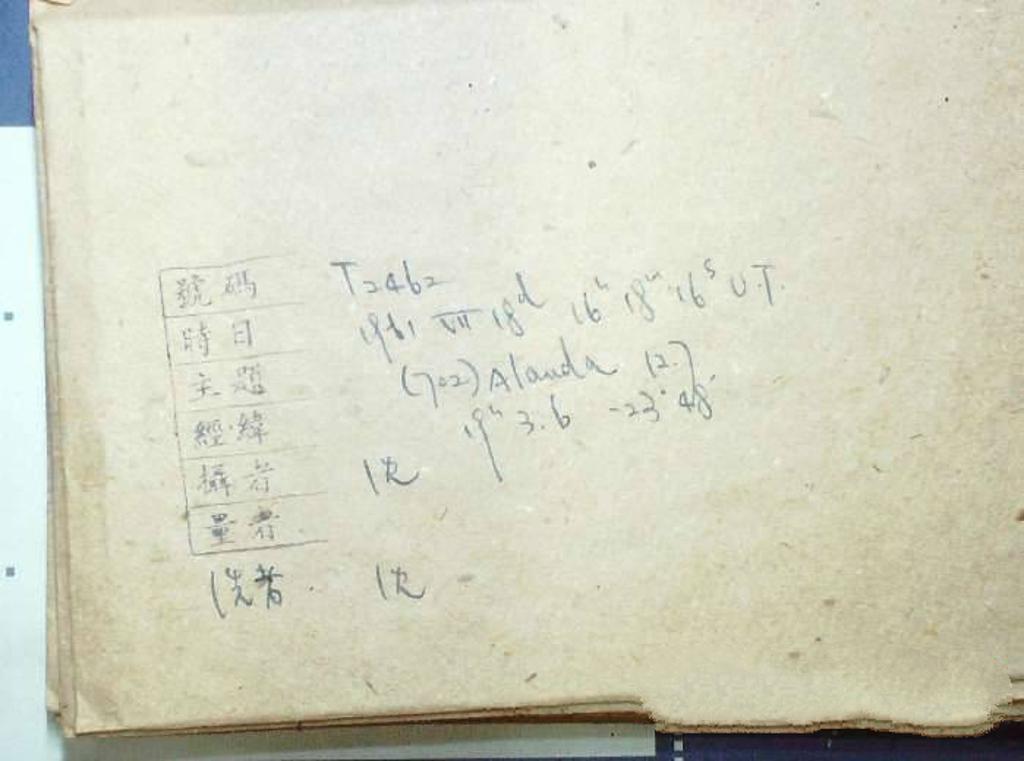 號碼 T2462
時日 1961 VII 18ᵈ 16ʰ 18ᵐ 16ˢ U.T.
主題 (702) Alanda 12.7
經緯 19ʰ 3.6 -23°48′
攝者 沈
量者
洗者 沈